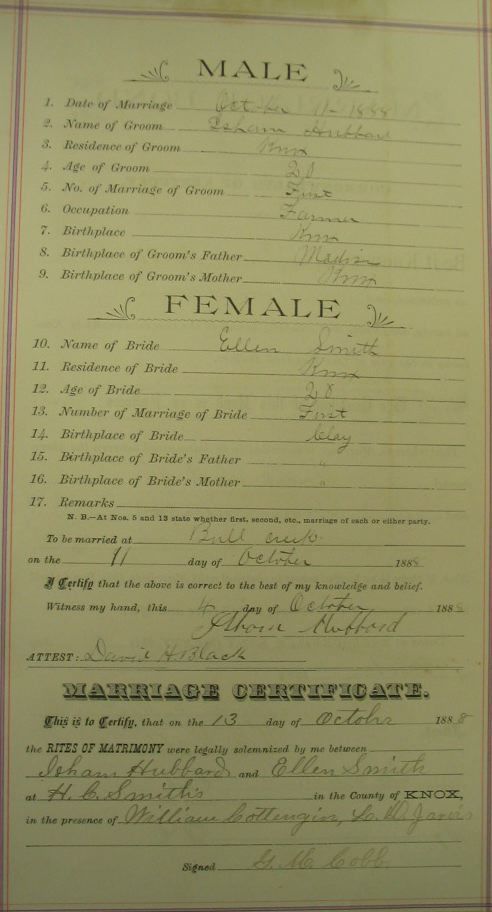 MALE
1. Date of Marriage October 11 - 1888
2. Name of Groom Isham Hubbard
3. Residence of Groom Knox
4. Age of Groom 20
5. No. of Marriage of Groom First
6. Occupation Farmer
7. Birthplace Knox
8. Birthplace of Groom's Father
9. Birthplace of Groom's Mother Knox
FEMALE
10. Name of Bride Ellen Smith
11. Residence of Bride Knox
12. Age of Bride 20
13. Number of Marriage of Bride First
14. Birthplace of Bride Clay
15. Birthplace of Bride's Father "
16. Birthplace of Bride's Mother "
17. Remarks
N. B.—At Nos. 5 and 13 state whether first, second, etc., marriage of each or either party.
To be married at Bull creek
on the 11 day of October 1888
I Certify that the above is correct to the best of my knowledge and belief.
Witness my hand, this 4 day of October 1888
Isham Hubbard
ATTEST: David H Black
MARRIAGE CERTIFICATE.
This is to Certify, that on the 13 day of October 1888
the RITES OF MATRIMONY were legally solemnized by me between
Isham Hubbard and Ellen Smith
at H. C. Smith's in the County of KNOX,
in the presence of William Cottengin, Jarvis
Signed G. M. Cobb